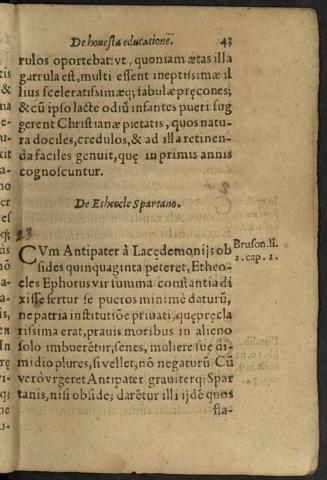 De honesta educationē. 43
rulos oportebat: vt, quoniam ætas illa
garrula est, multi essent ineptissimæ il
lius sceleratissimæq; fabulæ pręcones;
& cū ipso lacte odiū infantes pueri sug
gerent Christianæ pietatis, quos natu-
ra dociles, credulos, & ad illa retinen-
da faciles genuit, quę in primis annis
cognoscuntur.
De Etheocle Spartano.
23
CVm Antipater à Lacędemonijs ob
sides quinquaginta peteret, Etheo-
cles Ephorus vir summa constantia di
xisse fertur se pueros minimè daturū,
ne patria institutiōe priuati, quę pręcla
rissima erat, prauis moribus in alieno
solo imbuerētur; senes, muliere sue di-
midio plures, si vellet, nō negaturū. Cū
verò vrgeret Antipater grauiterq; Spar
tanis, nisi obside; darētur illi ijdē quos
sta-
Bruson. li.
2. cap. 1.